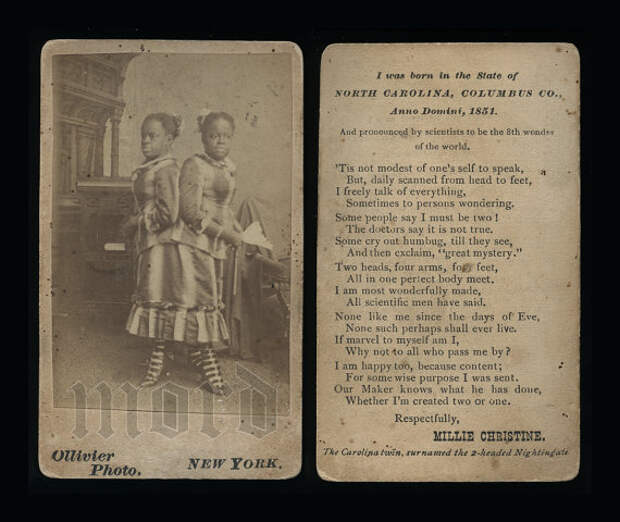 mord
Ollivier
Photo.
NEW YORK.
I was born in the State of
NORTH CAROLINA, COLUMBUS CO.,
Anno Domini, 1851.
And pronounced by scientists to be the 8th wonder
of the world.
'Tis not modest of one's self to speak,
But, daily scanned from head to feet,
I freely talk of everything,
Sometimes to persons wondering.
Some people say I must be two !
The doctors say it is not true.
Some cry out humbug, till they see,
And then exclaim, "great mystery."
Two heads, four arms, four feet,
All in one perfect body meet.
I am most wonderfully made,
All scientific men have said.
None like me since the days of Eve,
None such perhaps shall ever live.
If marvel to myself am I,
Why not to all who pass me by?
I am happy too, because content;
For some wise purpose I was sent.
Our Maker knows what he has done,
Whether I'm created two or one.
Respectfully,
MILLIE CHRISTINE.
The Carolina twin, surnamed the 2-headed Nightingale